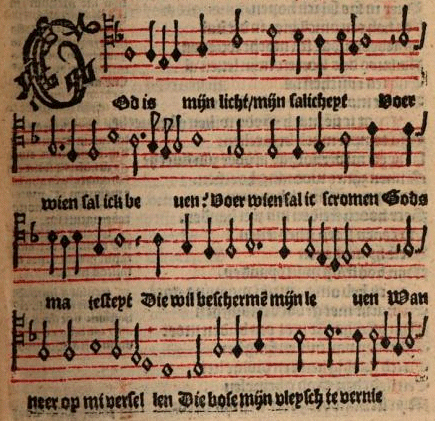 God is mijn licht/mijn salicheyt Voer
wien sal ick be uen? Voer wien sal ic scromen Gods
ma iesteyt Die wil beschermē mijn le uen Wan
neer op mi versel len Die bose mijn vleysch te vernie